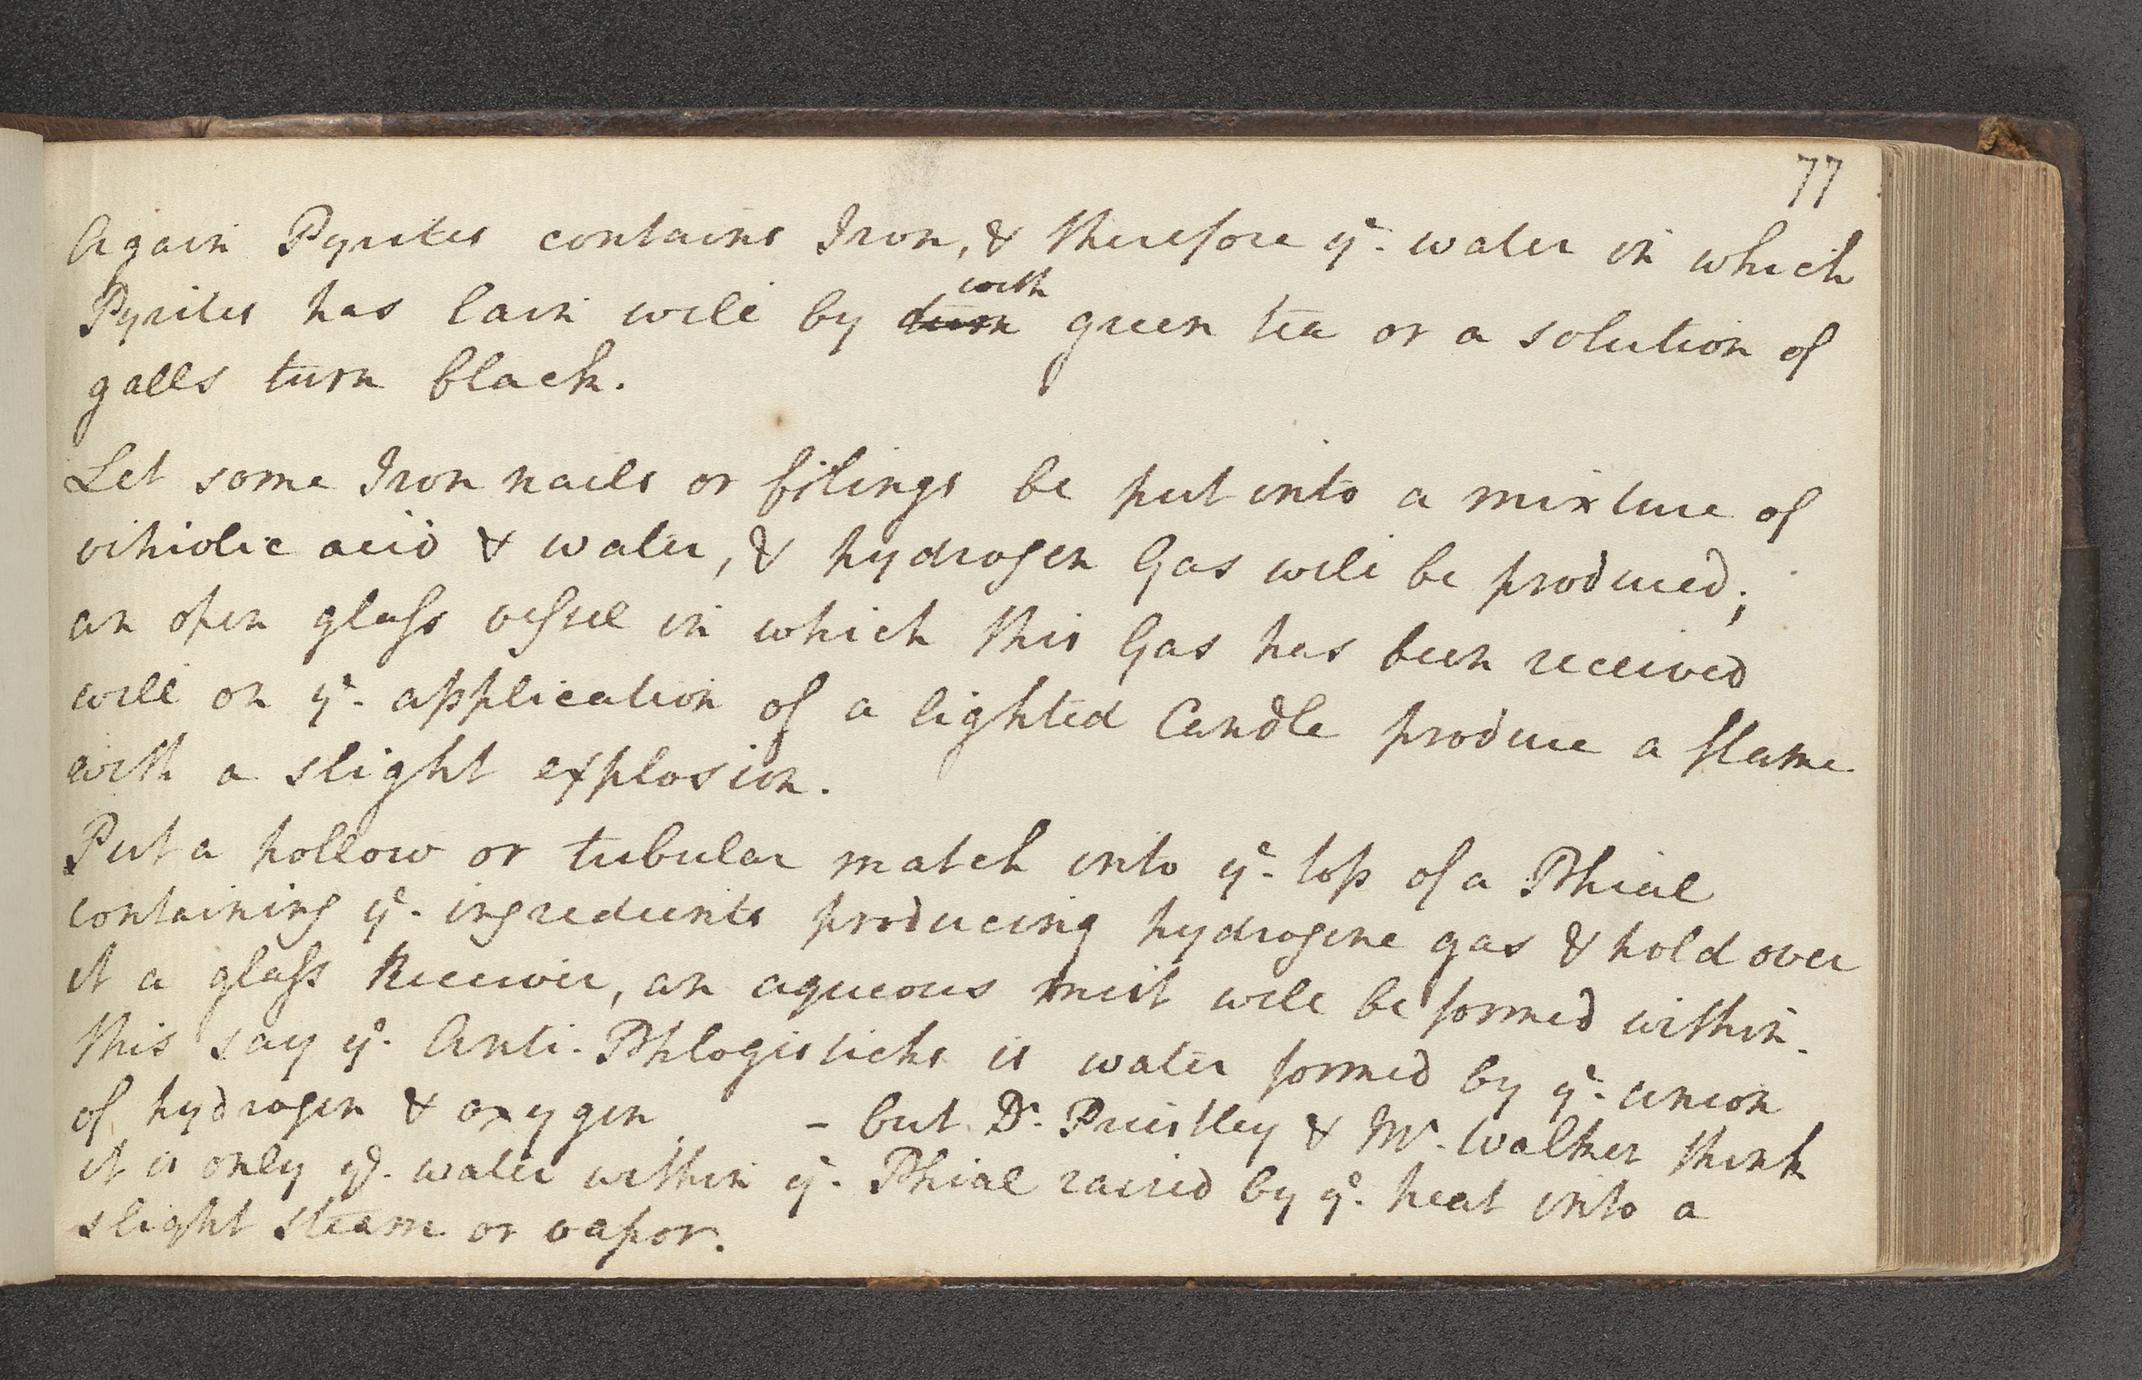 77
Again Pyrites contains Iron, & therefore ye. water in which
with
Pyrites has lain will by turn green tea or a solution of
galls turn black.
Let some Iron nails or filings be put into a mixture of
vitriolic acid & water, & hydrogen Gas will be produced;
an open glass vessel in which this Gas has been received
will on ye. application of a lighted Candle produce a flame
with a slight explosion.
Put a hollow or tubular match into ye. top of a Phial
containing ye. ingredients producing hydrogene gas & hold over
it a glass Receiver, an aqueous mist will be formed within.
this say ye. Anti-Phlogisticks is water formed by ye. union
of hydrogen & oxygen. – but Dr. Priestley & Mr. Walker think
it is only ye. water within ye. Phial raised by ye. heat into a
slight steam or vapor.